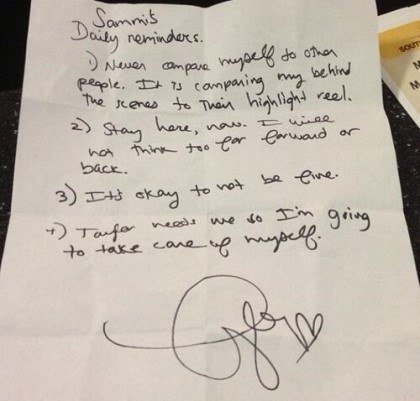 Sammi's
Daily reminders.
1) Never compare myself to other
people. It is comparing my behind
the scenes to their highlight reel.
2) Stay here, now. I will
not think too far forward or
back.
3) It's okay to not be fine.
4) Taylor needs me so I'm going
to take care of myself.
SOUT
M
M